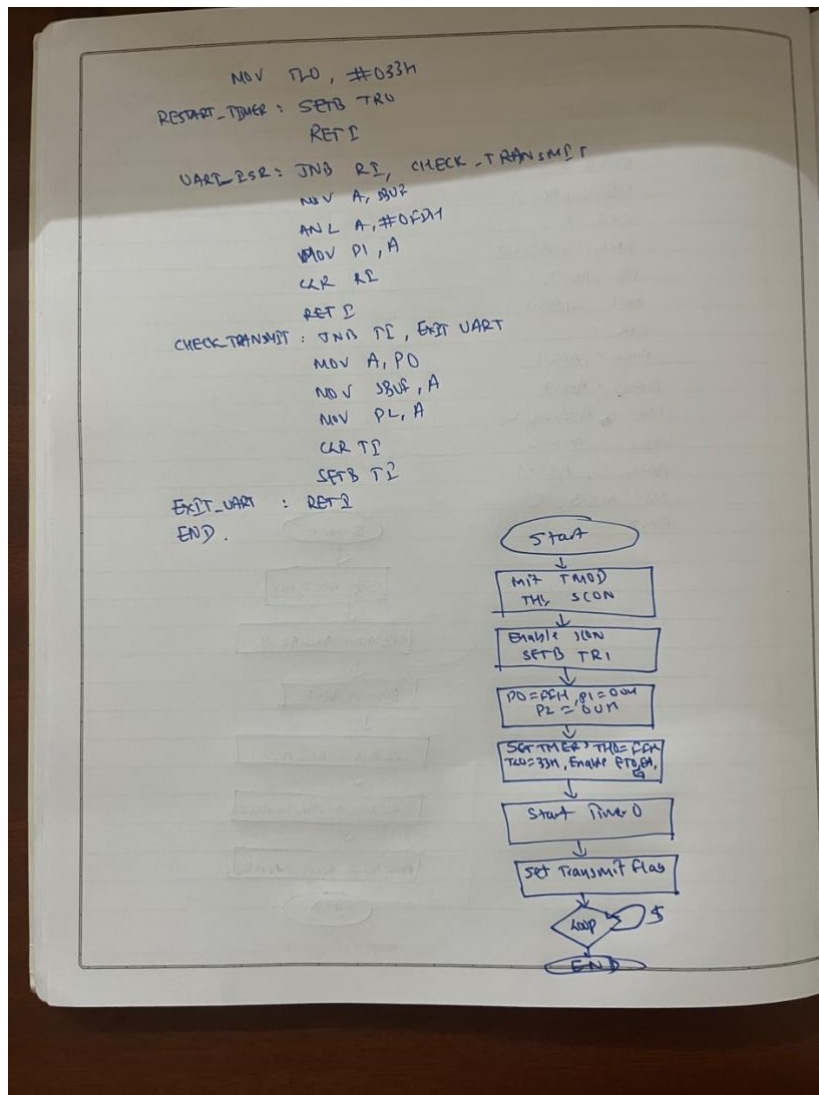 MOV TL0, #033H
RESTART_TIMER : SETB TR0
RETI
UART_ISR : JNB RI, CHECK_TRANSMIT
MOV A, SBUF
ANL A, #0FDH
MOV P1, A
CLR RI
RETI
CHECK_TRANSMIT : JNB TI, EXIT UART
MOV A, P0
MOV SBUF, A
MOV P2, A
CLR TI
SETB TI
EXIT_UART : RETI
END.
Start
Init TMOD
TH1, SCON
Enable SCON
SETB TR1
P0=FFH, P1=00H
P2=00H
SET TIMER, TH0=FFH
TL0=33H, Enable ET0, EA,
Start Timer 0
Set Transmit Flag
Loop
END